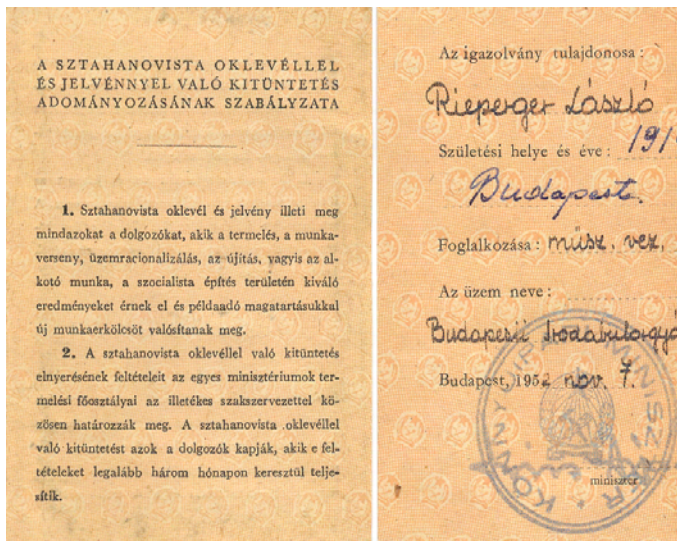 A SZTAHANOVISTA OKLEVÉLLEL
ÉS JELVÉNNYEL VALÓ KITÜNTETÉS
ADOMÁNYOZÁSÁNAK SZABÁLYZATA
1. Sztahanovista oklevél és jelvény illeti meg
mindazokat a dolgozókat, akik a termelés, a munka-
verseny, üzemracionalizálás, az újítás, vagyis az al-
kotó munka, a szocialista építés területén kiváló
eredményeket érnek el és példaadó magatartásukkal
új munkaerkölcsöt valósítanak meg.
2. A sztahanovista oklevéllel való kitüntetés
elnyerésének feltételeit az egyes minisztériumok ter-
melési főosztályai az illetékes szakszervezettel kö-
zösen határozzák meg. A sztahanovista oklevéllel
való kitüntetést azok a dolgozók kapják, akik e fel-
tételeket legalább három hónapon keresztül telje-
sítik.
Az igazolvány tulajdonosa:
Rieperger László
Születési helye és éve: 191
Budapest.
Foglalkozása: műsz. vez.
Az üzem neve:
Budapesti Irodabutorgyá
Budapest, 1952 nov. 7.
KÖNNYŰIPARI MINISZTER
miniszter